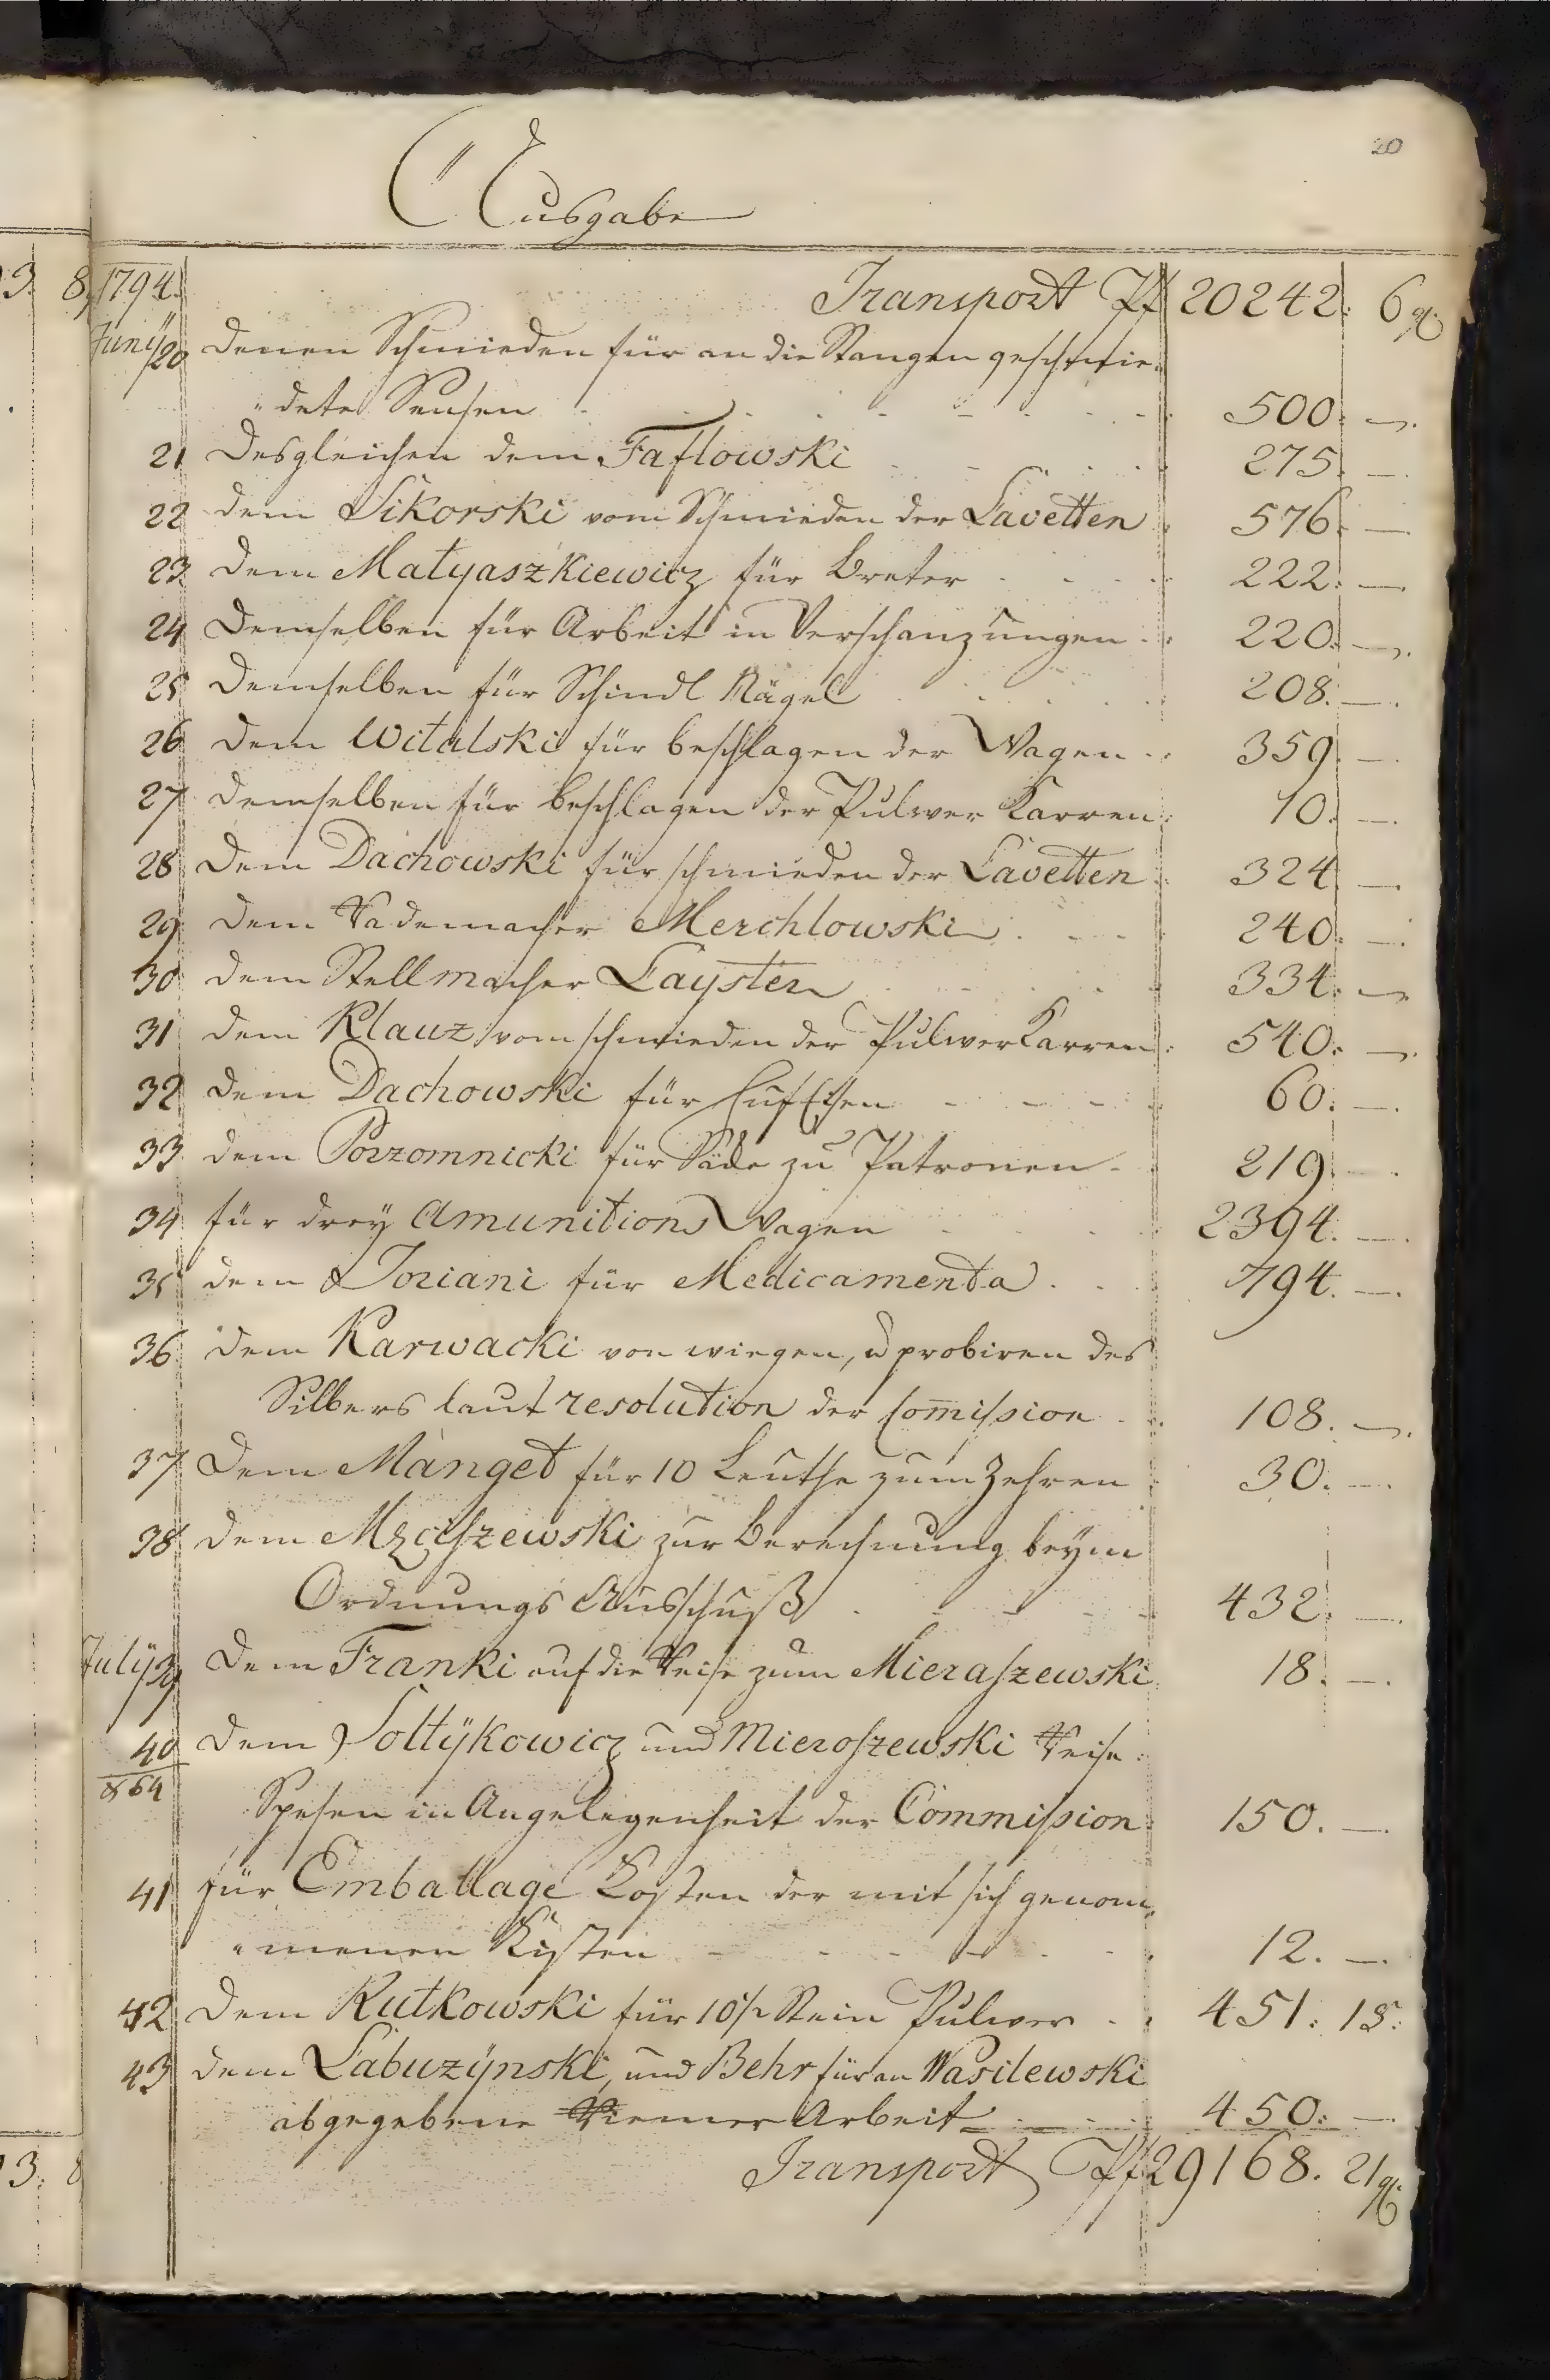 20
Ausgabe
1794. Transport Pf 20242. 6 gl.
Juny 20 Denen Schmieden für an die Stangen geschmie-
dete Sensen 500. —.
21 Desgleichen dem Faflowski 275. —.
22 dem Sikorski vom Schmieden der Lavetten 576. —
23 dem Matyaszkiewicz für Breter 222. —
24 Demselben für Arbeit in Verschanzungen 220. —.
25 Demselben für Schindl Nägel 208. —.
26 dem Witalski für beschlagen der Wagen 359. —.
27 demselben für beschlagen der Pulwer Karren 10. —.
28 dem Dachowski für schmieden der Lavetten 324. —.
29 dem Rademacher Merchlowski 240. —.
30 dem Stellmacher Layster 334. —
31 dem Klauz vom schmieden der Pulwer Karren 540. —.
32 dem Dachowski für HufEisen 60. —.
33 dem Porzomnicki für Säcke zu Patronen 219. —.
34 für drey Amunitions Wagen 2394. —.
35 dem Joriani für Medicamenta 794. —.
36 dem Karwacki von wiegen, u probiren des
Silbers laut resolution der Com̄ission 108. —.
37 Dem Manget für 10 Leuthe zum Zehren 30. —.
38 dem zur Berechnung beym
Ordnungs Ausschuß 432. —.
July 39 dem Franki auf die Reise zum Mieraszewski 18. —.
40 dem Soltÿkowicz und Mieroszewski Reise
864 Spesen in Angelegenheit der Commission 150. —.
41 für Emballage Kosten der mit sich genom-
menen Kisten 12. —.
42 Dem Rutkowski für 10½ Stein Pulwer 451. 15.
43 dem Labuzÿnski, und Behr für an Wasilewski
abgegebene Riemer Arbeit 450. —.
Transport Pf 29168. 21 gl.